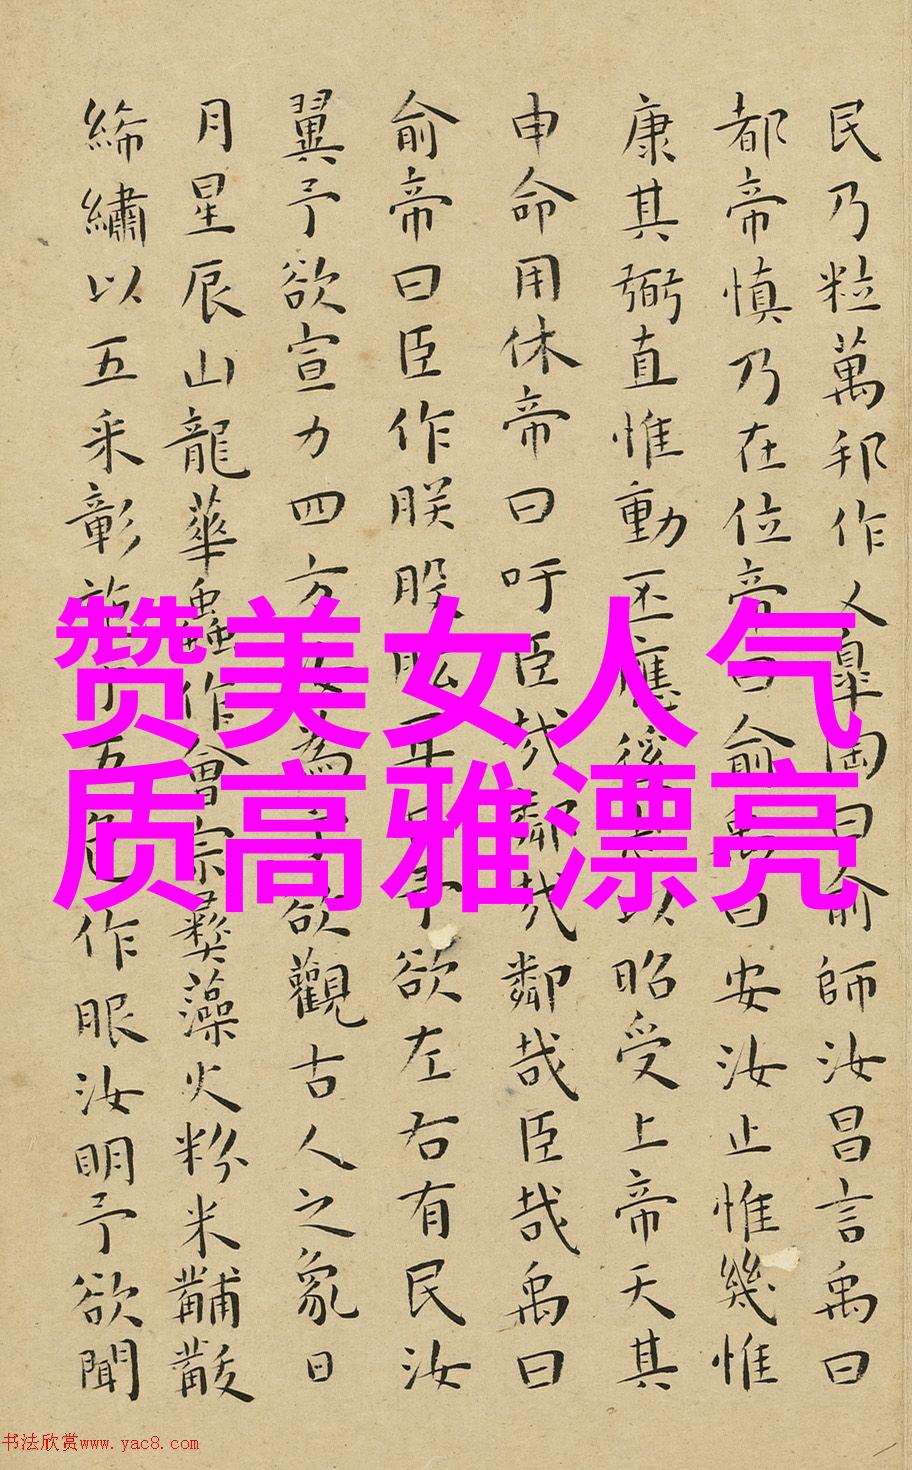 民乃粒萬邦作乂臯陶曰俞師汝昌言禹曰
都帝慎乃在位帝曰俞禹曰安汝止惟幾惟
康其弼直惟動丕應徯志以昭受上帝天其
申命用休帝曰吁臣哉鄰哉鄰哉臣哉禹曰
俞帝曰臣作朕股肱耳目予欲左右有民汝
翼予欲宣力四方汝為予欲觀古人之象日
月星辰山龍華蟲作會宗彝藻火粉米黼黻
絺繡以五采彰施于五色作服汝明予欲聞
赞美女人气
质高雅漂亮
书法欣赏www.yac8.com